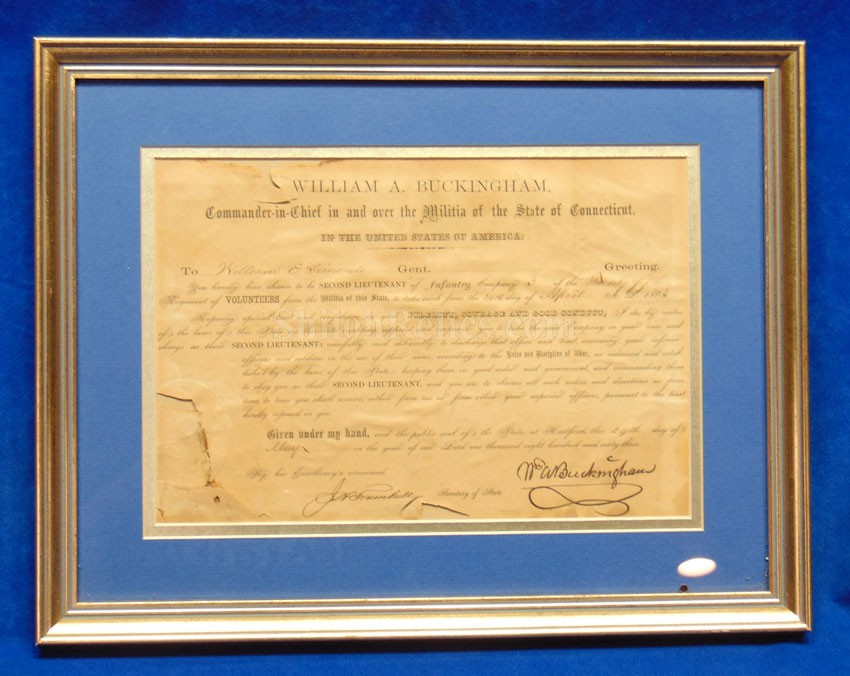 WILLIAM A. BUCKINGHAM,
Commander-in-Chief in and over the Militia of the State of Connecticut,
IN THE UNITED STATES OF AMERICA:
To William E. Simonds Gent. Greeting.
You having been chosen to be SECOND LIEUTENANT of Infantry Company of the
Regiment of VOLUNTEERS from the Militia of this State, to take rank from the day of April 1863
Reposing special trust and confidence in your FIDELITY, COURAGE AND GOOD CONDUCT, I do by virtue
of the laws of this State
charge as their SECOND LIEUTENANT; carefully and diligently to discharge that office and trust, exercising your inferior
officers and soldiers in the use of their arms, according to the Rules and Discipline of War, as ordained and estab-
lished by the laws of this State; keeping them in good order and government, and commanding them
to obey you as their SECOND LIEUTENANT, and you are to observe all such orders and directions as from
time to time you shall receive, either from me or from other your superior officers, pursuant to the trust
hereby reposed in you.
Given under my hand, and the public seal of the State, at Hartford, this 29th day of
May in the year of our Lord one thousand eight hundred and sixty-three
By his Excellency's command,
Wm A Buckingham
Secretary of State